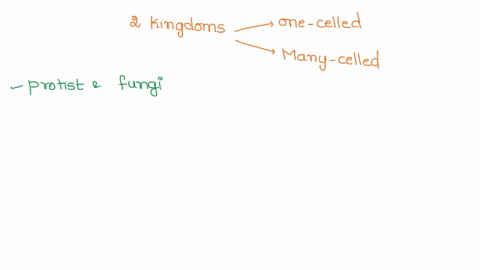 2 Kingdoms
one-celled
Many-celled
- protist & fungi